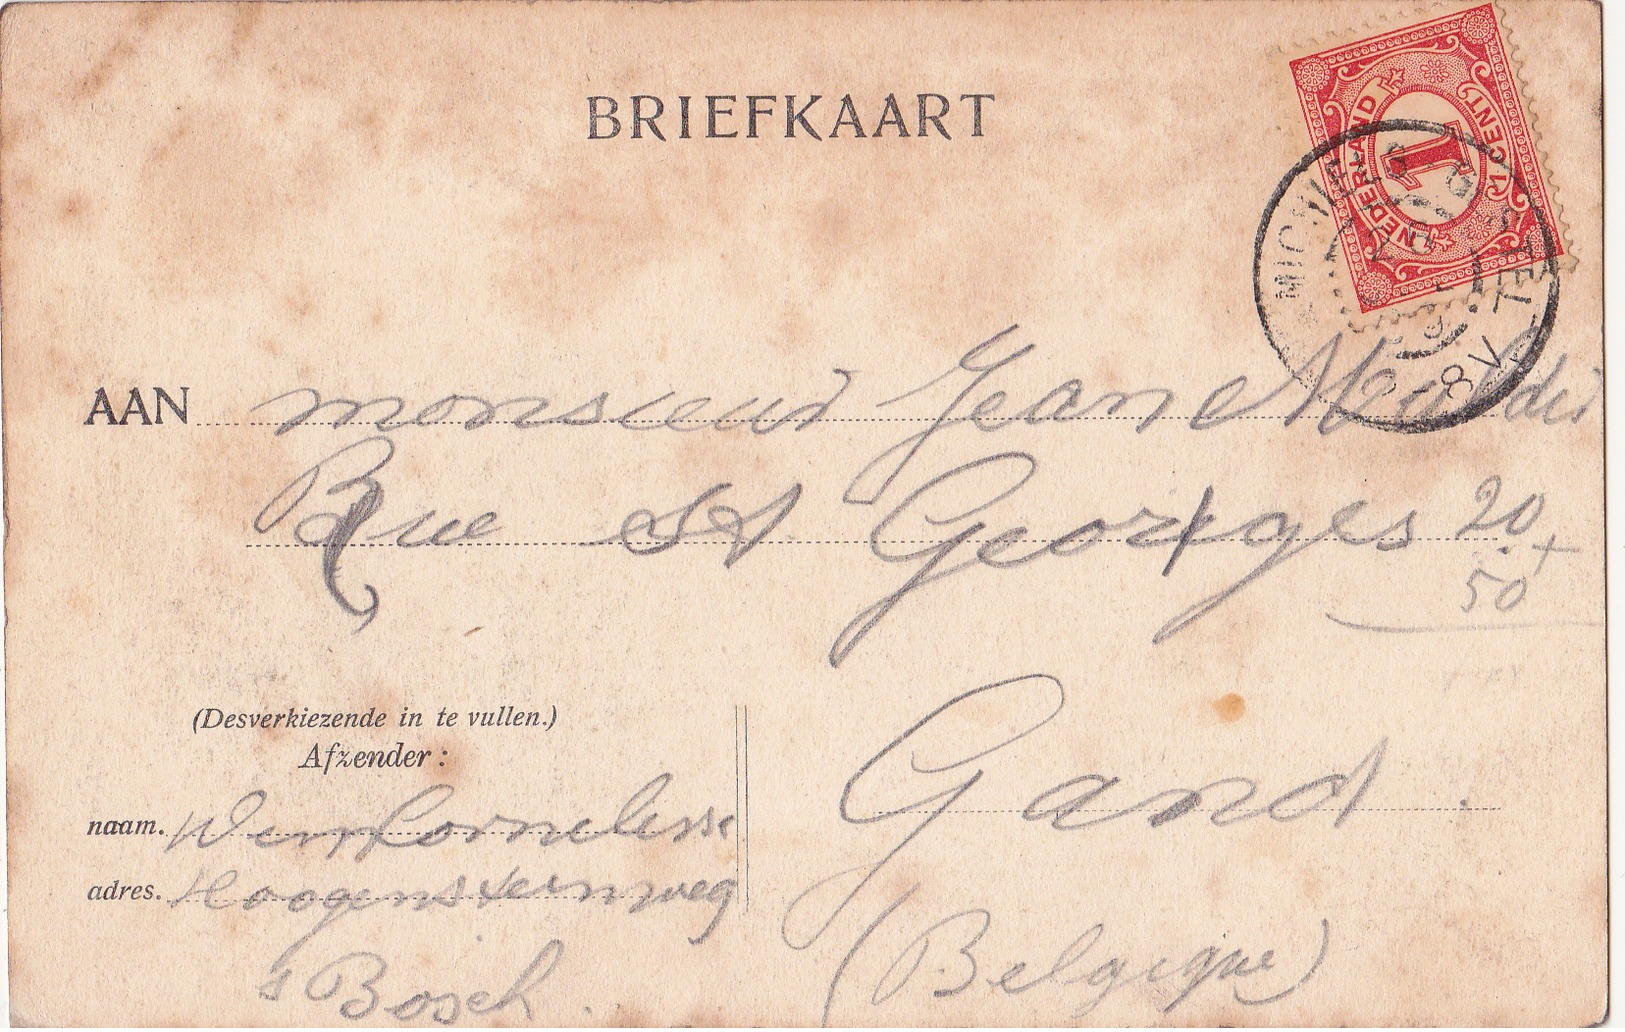 BRIEFKAART
NEDERLAND 1 CENT
1
MICHIELS GESTEL
8 V
AAN monsieur Jean Mulder
Rue St Georges 20
50
Gand.
(Belgique)
(Desverkiezende in te vullen.)
Afzender:
naam.
adres. Hoogensteenweg
s Bosch.